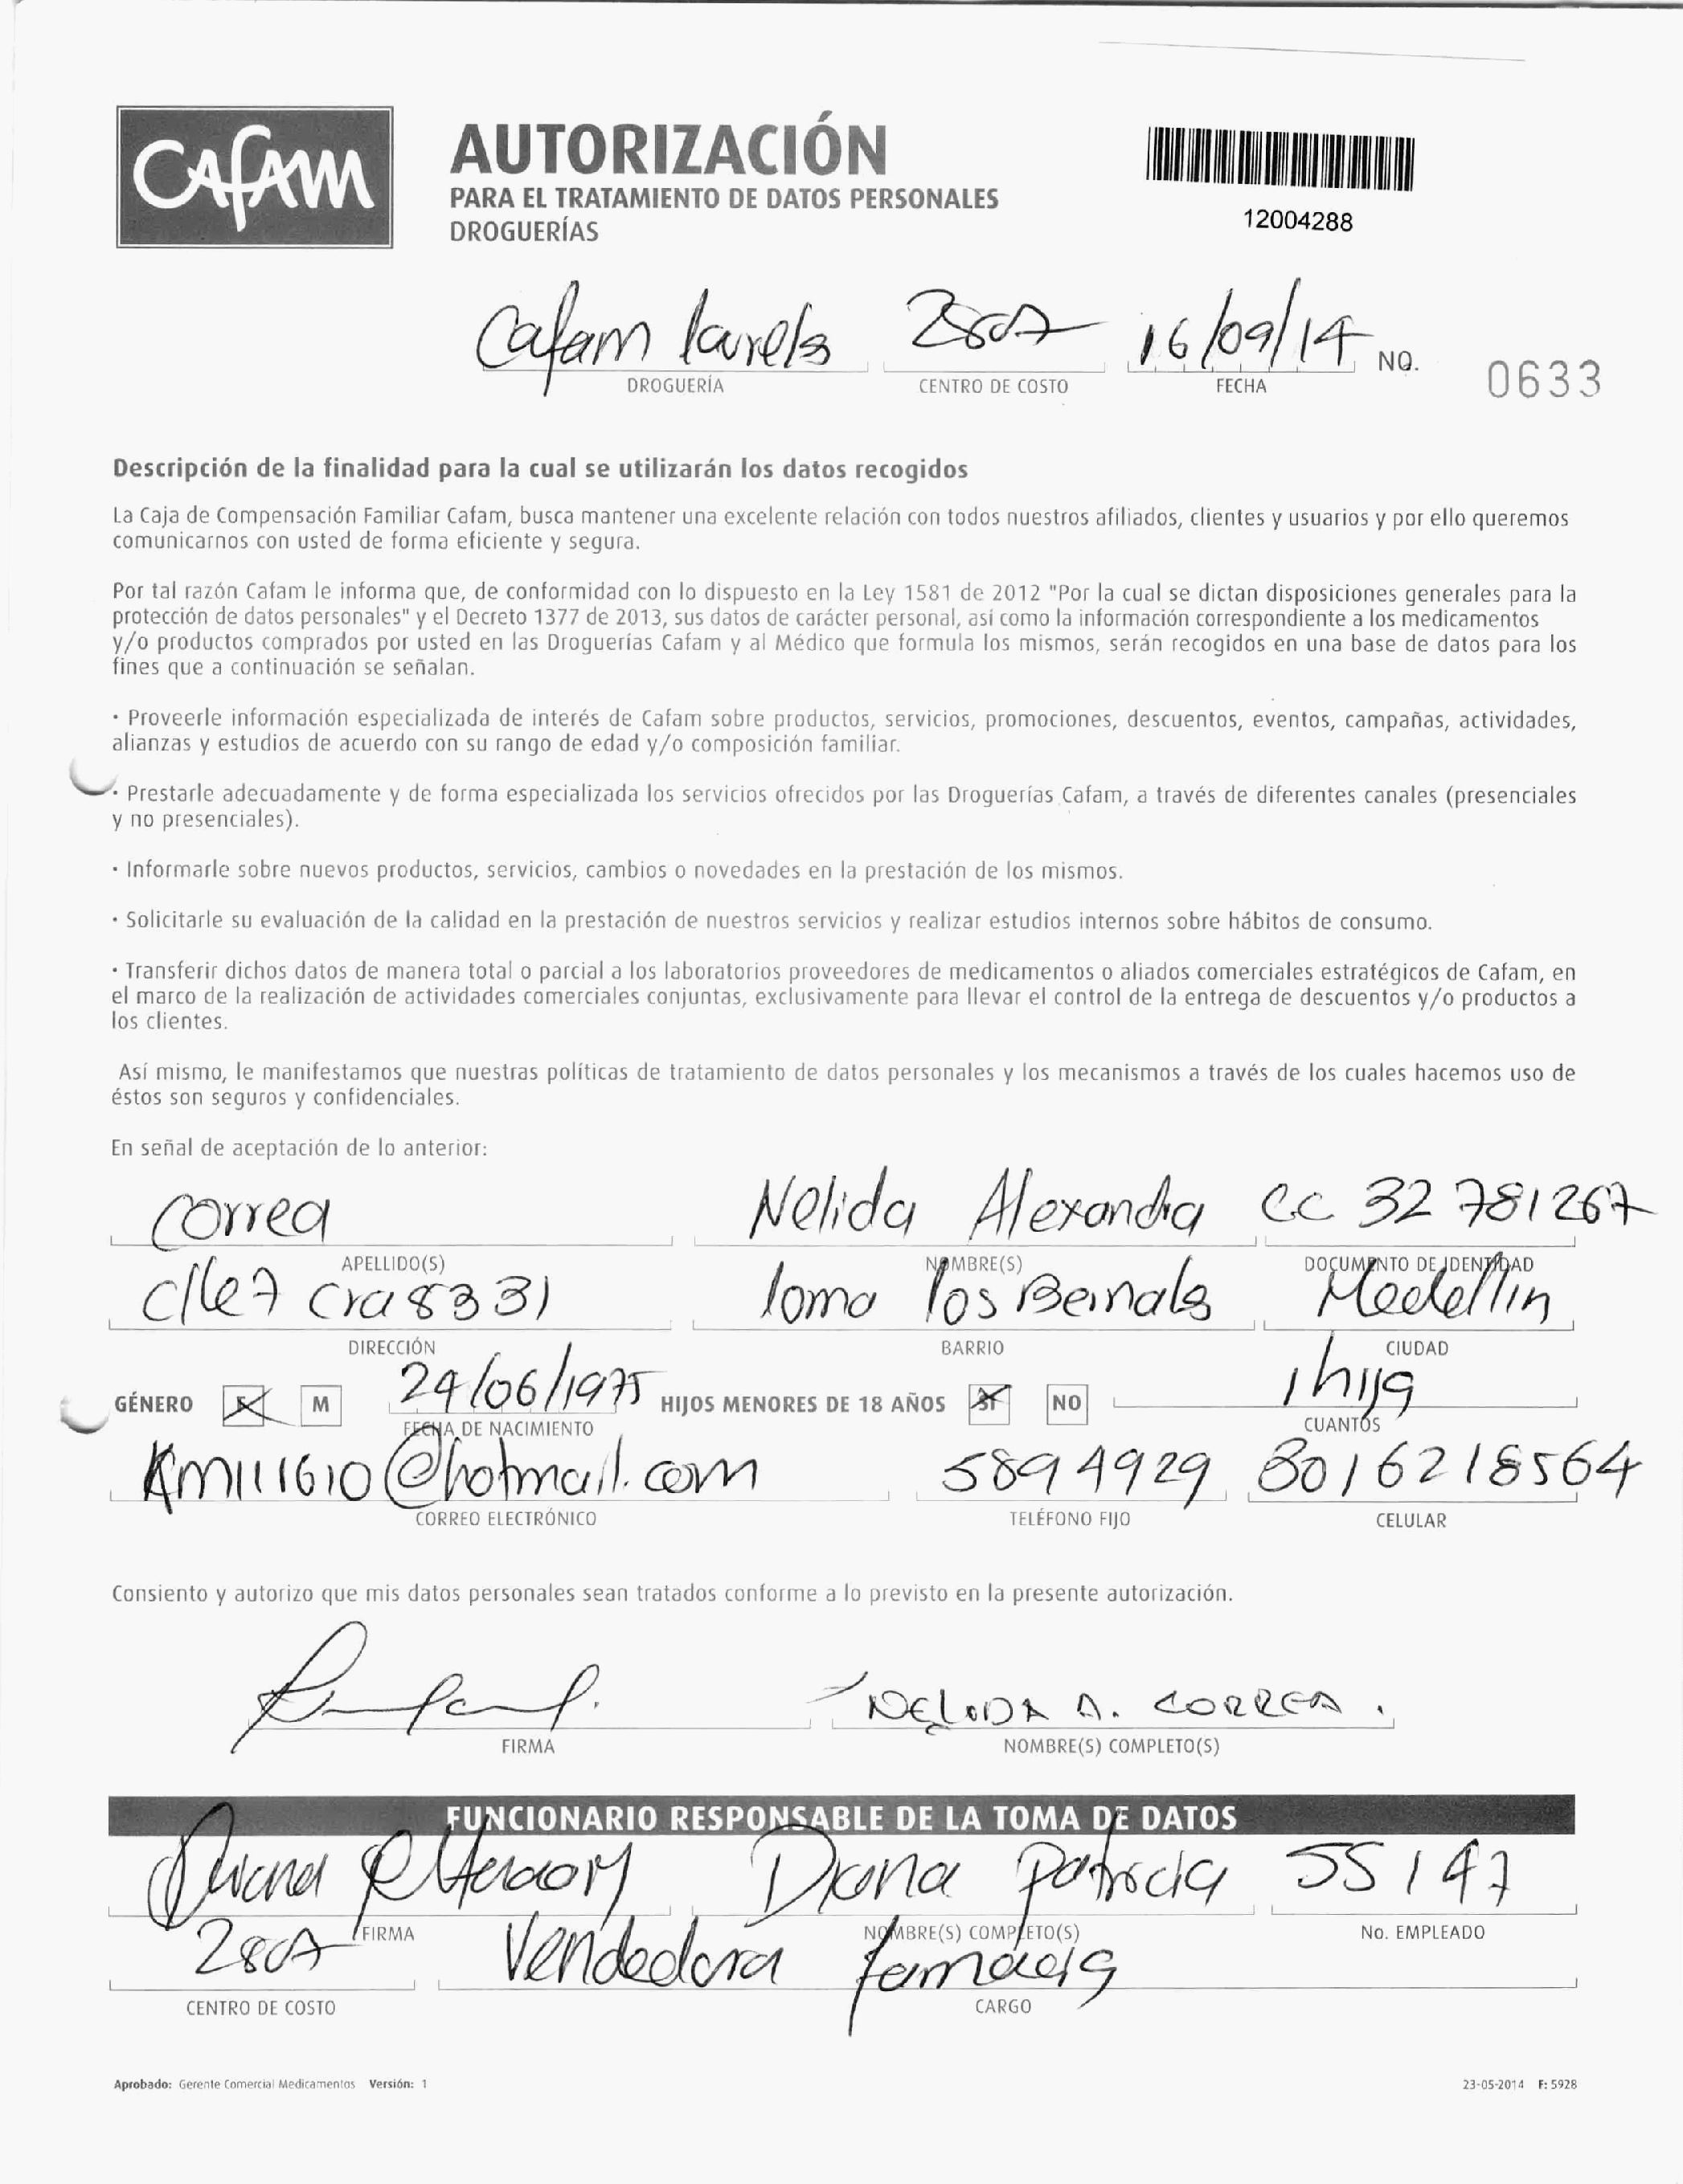 CAFAM
AUTORIZACIÓN
PARA EL TRATAMIENTO DE DATOS PERSONALES
DROGUERÍAS
12004288
Cafam laureles 2807 16/09/14 NO. 0633
DROGUERÍA CENTRO DE COSTO FECHA
Descripción de la finalidad para la cual se utilizarán los datos recogidos
La Caja de Compensación Familiar Cafam, busca mantener una excelente relación con todos nuestros afiliados, clientes y usuarios y por ello queremos
comunicarnos con usted de forma eficiente y segura.
Por tal razón Cafam le informa que, de conformidad con lo dispuesto en la Ley 1581 de 2012 "Por la cual se dictan disposiciones generales para la
protección de datos personales" y el Decreto 1377 de 2013, sus datos de carácter personal, así como la información correspondiente a los medicamentos
y/o productos comprados por usted en las Droguerías Cafam y al Médico que formula los mismos, serán recogidos en una base de datos para los
fines que a continuación se señalan.
• Proveerle información especializada de interés de Cafam sobre productos, servicios, promociones, descuentos, eventos, campañas, actividades,
alianzas y estudios de acuerdo con su rango de edad y/o composición familiar.
• Prestarle adecuadamente y de forma especializada los servicios ofrecidos por las Droguerías Cafam, a través de diferentes canales (presenciales
y no presenciales).
• Informarle sobre nuevos productos, servicios, cambios o novedades en la prestación de los mismos.
• Solicitarle su evaluación de la calidad en la prestación de nuestros servicios y realizar estudios internos sobre hábitos de consumo.
• Transferir dichos datos de manera total o parcial a los laboratorios proveedores de medicamentos o aliados comerciales estratégicos de Cafam, en
el marco de la realización de actividades comerciales conjuntas, exclusivamente para llevar el control de la entrega de descuentos y/o productos a
los clientes.
Así mismo, le manifestamos que nuestras políticas de tratamiento de datos personales y los mecanismos a través de los cuales hacemos uso de
éstos son seguros y confidenciales.
En señal de aceptación de lo anterior:
Correa Nelida Alexandra CC 32 781267
APELLIDO(S) NOMBRE(S) DOCUMENTO DE IDENTIDAD
clle7 cra 83 31 loma los Bernales Medellin
DIRECCIÓN BARRIO CIUDAD
GÉNERO F M 29/06/1975 HIJOS MENORES DE 18 AÑOS SÍ NO 1 hija
FECHA DE NACIMIENTO CUANTOS
Km111610@hotmail.com 5894929 3016218564
CORREO ELECTRÓNICO TELÉFONO FIJO CELULAR
Consiento y autorizo que mis datos personales sean tratados conforme a lo previsto en la presente autorización.
NELIDA A. CORREA.
FIRMA NOMBRE(S) COMPLETO(S)
FUNCIONARIO RESPONSABLE DE LA TOMA DE DATOS
Diana Patricia 55147
FIRMA NOMBRE(S) COMPLETO(S) No. EMPLEADO
2807 Vendedora farmacia
CENTRO DE COSTO CARGO
Aprobado: Gerente Comercial Medicamentos Versión: 1 23-05-2014 F: 5928